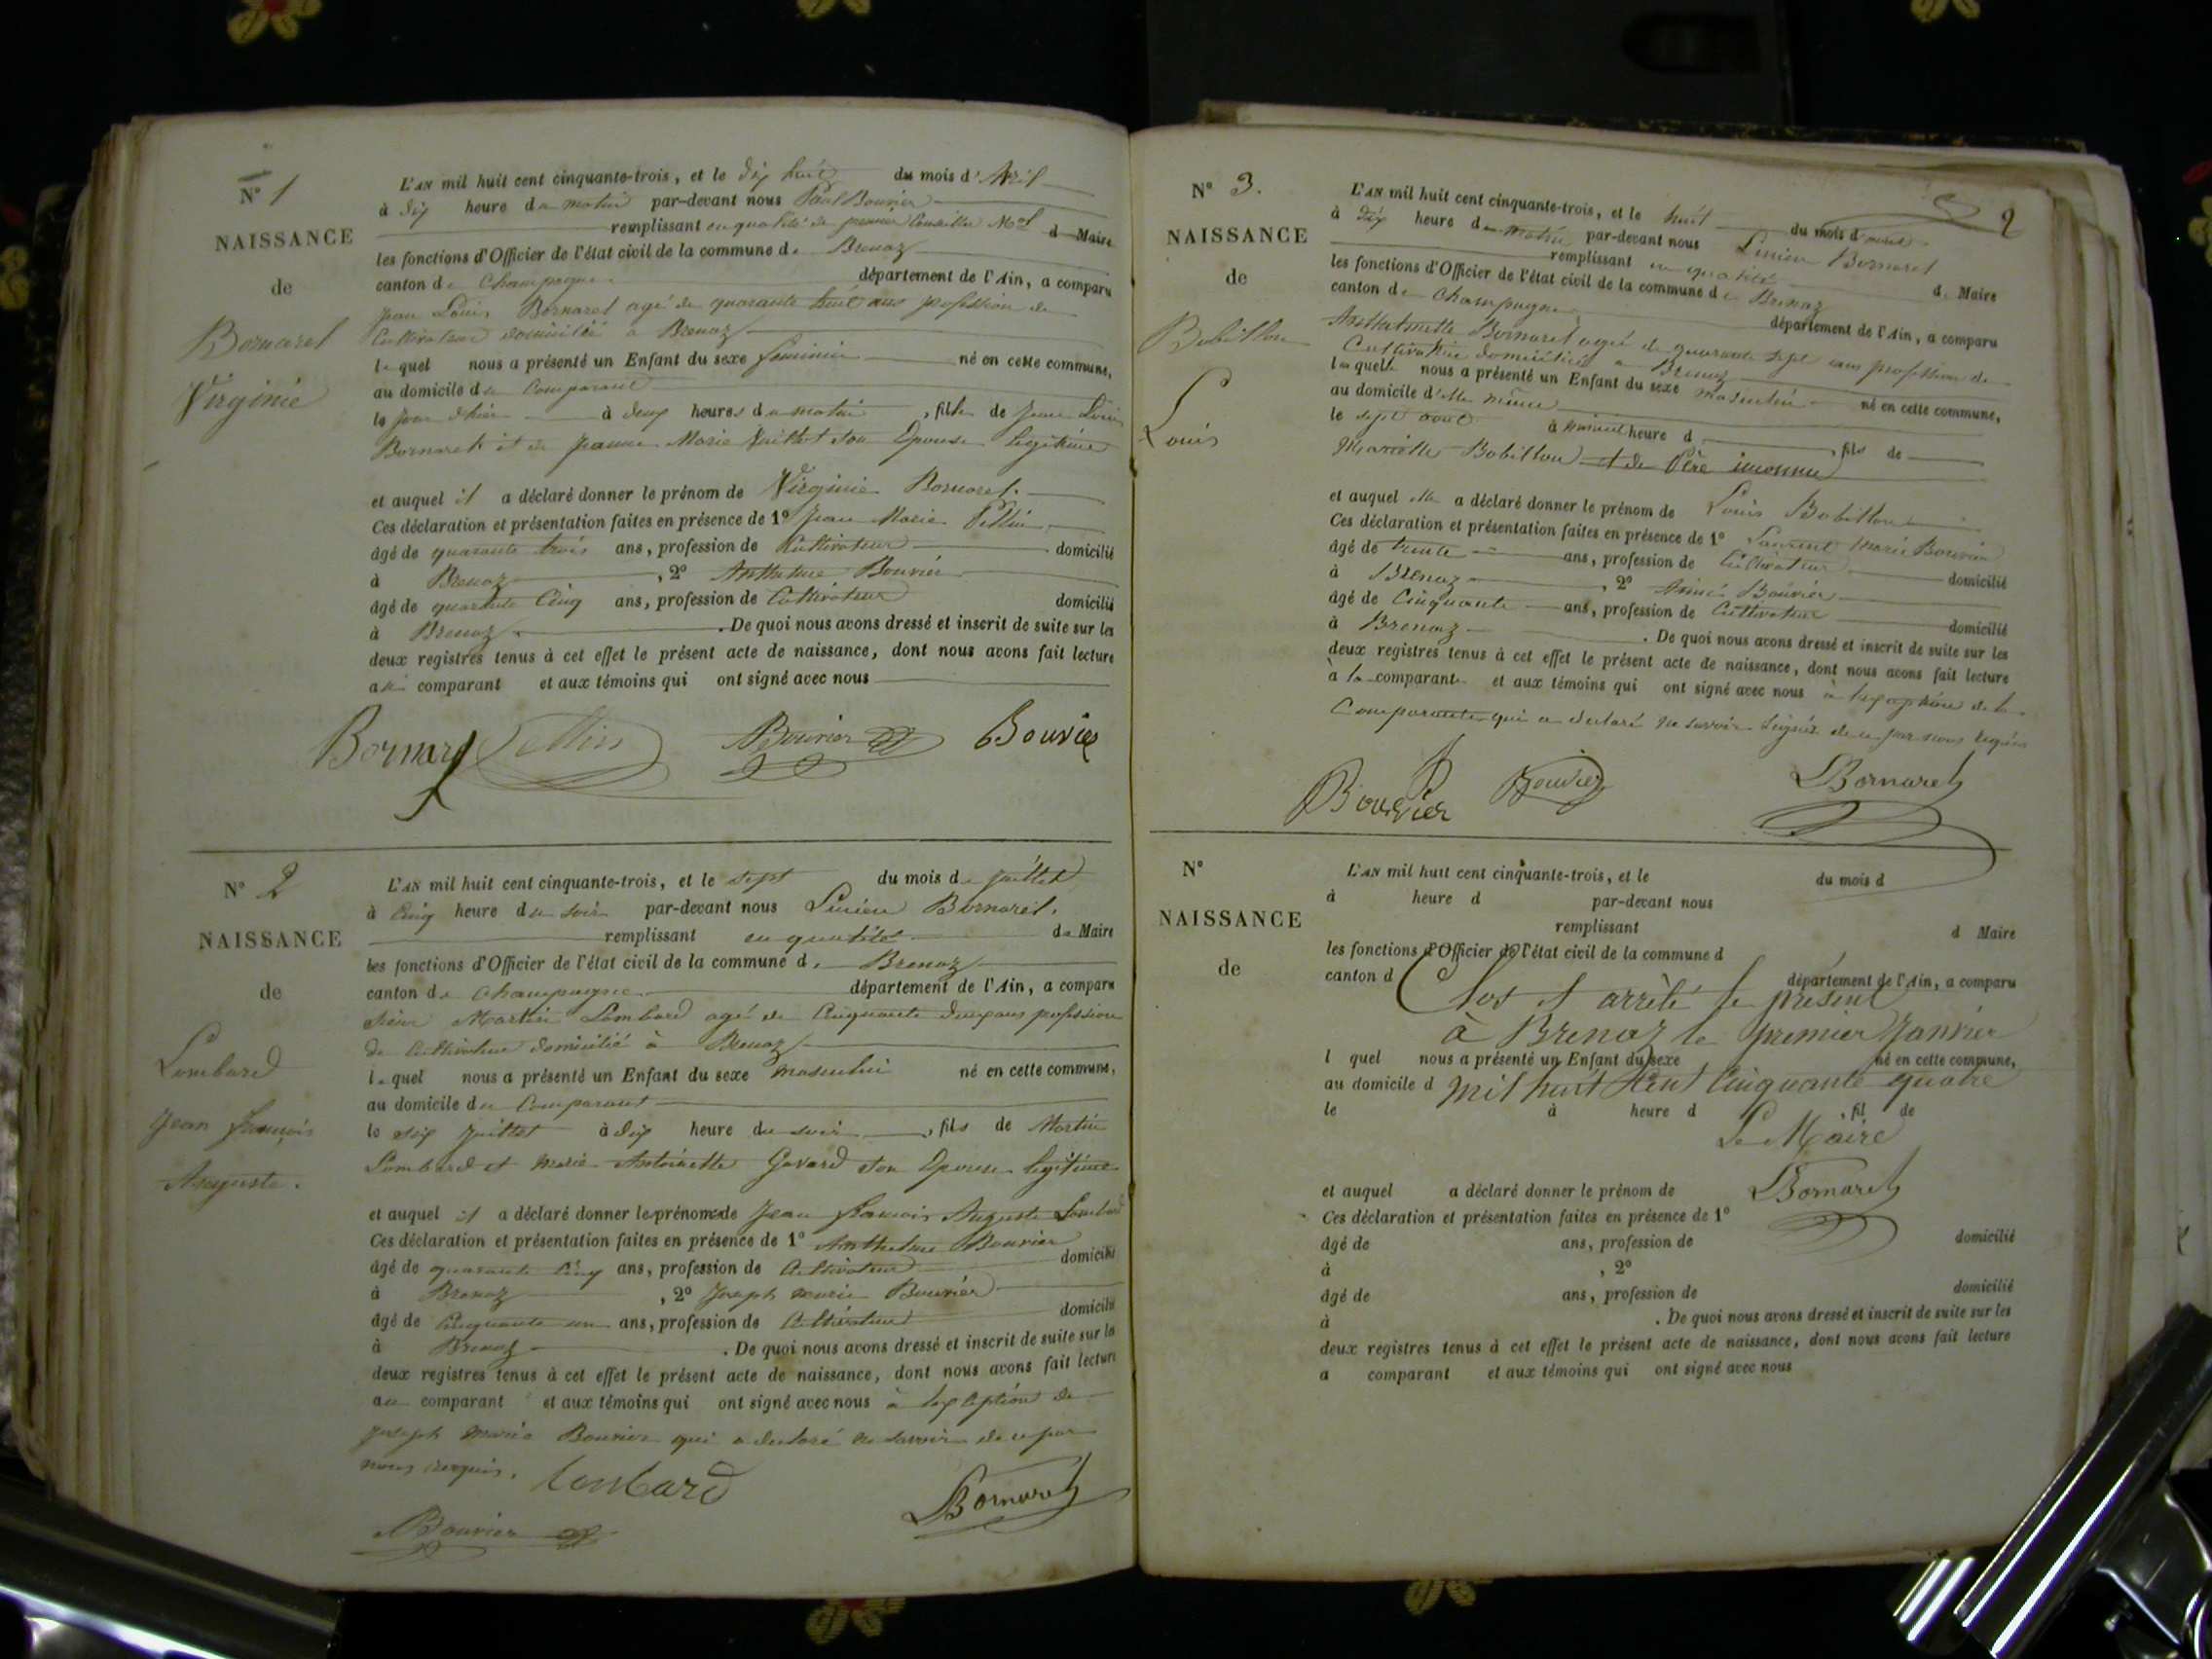 N° 1
NAISSANCE
de
Bornarel
Virginie
L'AN mil huit cent cinquante-trois, et le dix huit du mois d'Avril
à dix heure du matin par-devant nous Paul Bouvier
remplissant en qualité de premier Conseiller Mal d Maire
les fonctions d'Officier de l'état civil de la commune de Brenaz
canton de Champagne département de l'Ain, a comparu
Jean Louis Bornarel agé de quarante huit ans profession de
Cultivateur domicilié a Brenaz
lequel nous a présenté un Enfant du sexe feminin né en cette commune,
au domicile du Comparant
le jour d'hier à deux heures du matin, fille de Jean Louis
Bornarel et de Jeanne Marie Juillet son Epouse legitime
et auquel il a déclaré donner le prénom de Virginie Bornarel.
Ces déclaration et présentation faites en présence de 1° Jean Marie
âgé de quarante trois ans, profession de Cultivateur domicilié
à Brenaz, 2° Anthelme Bouvier
âgé de quarante Cinq ans, profession de Cultivateur domicilié
à Brenaz. De quoi nous avons dressé et inscrit de suite sur les
deux registres tenus à cet effet le présent acte de naissance, dont nous avons fait lecture
au comparant et aux témoins qui ont signé avec nous
Bornarel Bouvier Bouvier
N° 2
NAISSANCE
de
Lombard
Jean françois
Auguste.
L'AN mil huit cent cinquante-trois, et le sept du mois de Juillet
à Cinq heure du soir par-devant nous Lucien Bornarel.
remplissant en qualité de Maire
les fonctions d'Officier de l'état civil de la commune de Brenaz
canton de Champagne département de l'Ain, a comparu
sieur Martin Lombard agé de Cinquante deux ans profession
de Cultivateur domicilié à Brenaz
lequel nous a présenté un Enfant du sexe masculin né en cette commune,
au domicile du Comparant
le six Juillet à dix heure du soir, fils de Martin
Lombard et Marie Antoinette Gavard son Epouse legitime
et auquel il a déclaré donner le prénom de Jean francois Auguste Lombard
Ces déclaration et présentation faites en présence de 1° Anthelme Bouvier
âgé de quarante Cinq ans, profession de Cultivateur domicilié
à Brenaz, 2° Joseph marie Bouvier
âgé de Cinquante un ans, profession de Cultivateur domicilié
à Brenaz. De quoi nous avons dressé et inscrit de suite sur les
deux registres tenus à cet effet le présent acte de naissance, dont nous avons fait lecture
au comparant et aux témoins qui ont signé avec nous à l'exception de
Joseph Marie Bouvier qui a declaré ne savoir de ce par
nous requis. Lombard
Bouvier Bornarel
2
N° 3.
NAISSANCE
de
Bobillon
Louis
L'AN mil huit cent cinquante-trois, et le huit du mois d'aout
à dix heure du matin par-devant nous Lucien Bornarel
remplissant en qualité de Maire
les fonctions d'Officier de l'état civil de la commune de Brenaz
canton de Champagne département de l'Ain, a comparu
Anthelmette Bornarel agée de quarante sept ans profession de
Cultivatrice domiciliée a Brenaz
laquelle nous a présenté un Enfant du sexe masculin né en cette commune,
au domicile d'elle même
le sept aout à minuit heure d fils de
Mariette Bobillon et de Père inconnu
et auquel elle a déclaré donner le prénom de Louis Bobillon
Ces déclaration et présentation faites en présence de 1° Laurent Marie Bouvier
âgé de trente ans, profession de Cultivateur domicilié
à Brenaz, 2° Aimé Bouvier
âgé de Cinquante ans, profession de Cultivateur domicilié
à Brenaz. De quoi nous avons dressé et inscrit de suite sur les
deux registres tenus à cet effet le présent acte de naissance, dont nous avons fait lecture
à la comparante et aux témoins qui ont signé avec nous a l'exception de la
Comparante qui a declaré ne savoir Signer de ce par nous requis
Bouvier Bouvier Bornarel
N°
NAISSANCE
de
L'AN mil huit cent cinquante-trois, et le du mois d
à heure d par-devant nous
remplissant d Maire
les fonctions d'Officier de l'état civil de la commune d
canton d département de l'Ain, a comparu
Clos et arrêté le présent
à Brenaz le premier Janvier
l quel nous a présenté un Enfant du sexe né en cette commune,
au domicile d
mil huit Cent Cinquante quatre
le à heure d , fil de
Le Maire
Bornarel
et auquel a déclaré donner le prénom de
Ces déclaration et présentation faites en présence de 1°
âgé de ans, profession de domicilié
à , 2°
âgé de ans, profession de domicilié
à . De quoi nous avons dressé et inscrit de suite sur les
deux registres tenus à cet effet le présent acte de naissance, dont nous avons fait lecture
a comparant et aux témoins qui ont signé avec nous